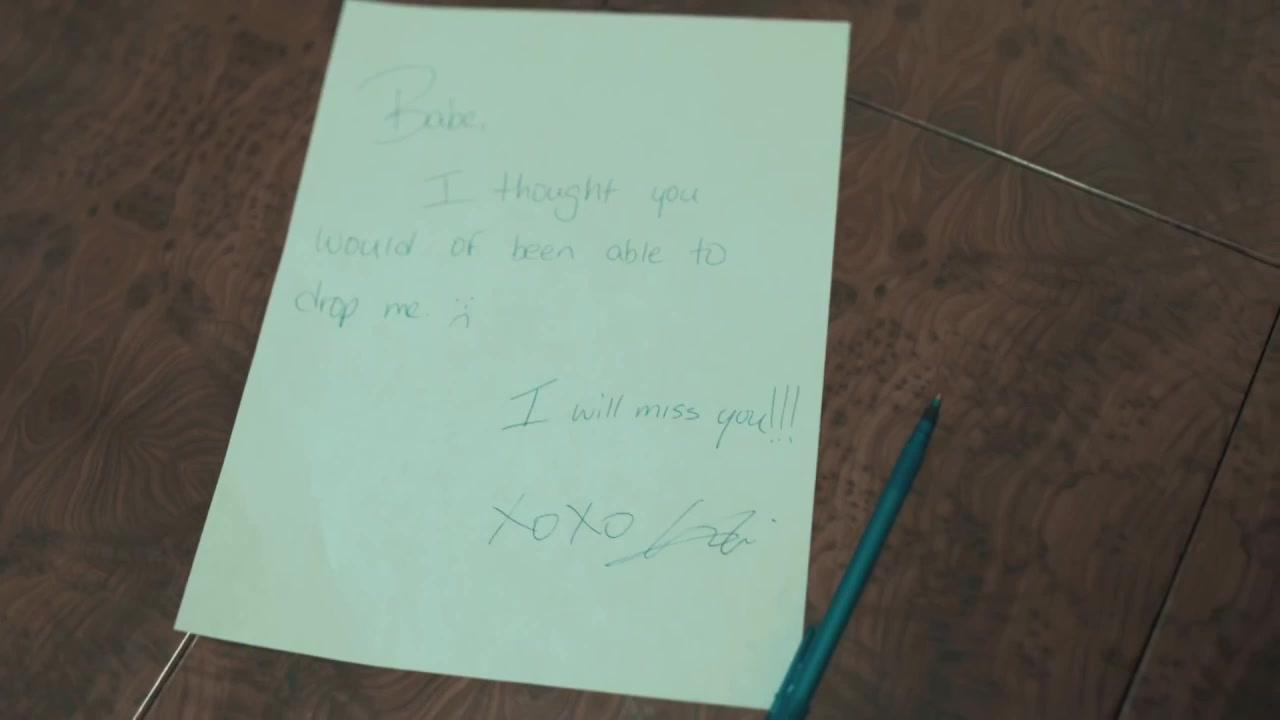 Babe,
I thought you
would of been able to
drop me. :(
I will miss you!!!
XOXO